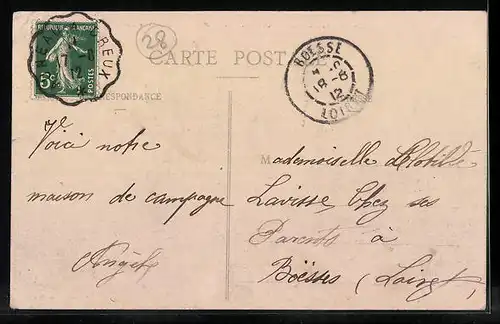 28
REPUBLIQUE FRANÇAISE
5c
POSTES
REUX
CARTE POSTALE
BOESSE
18-8
12
LOIRET
Voici notre
maison de campagne
Mademoiselle Clotilde
Lavisse, Chez ses
Parents à
Boësses (Loiret)